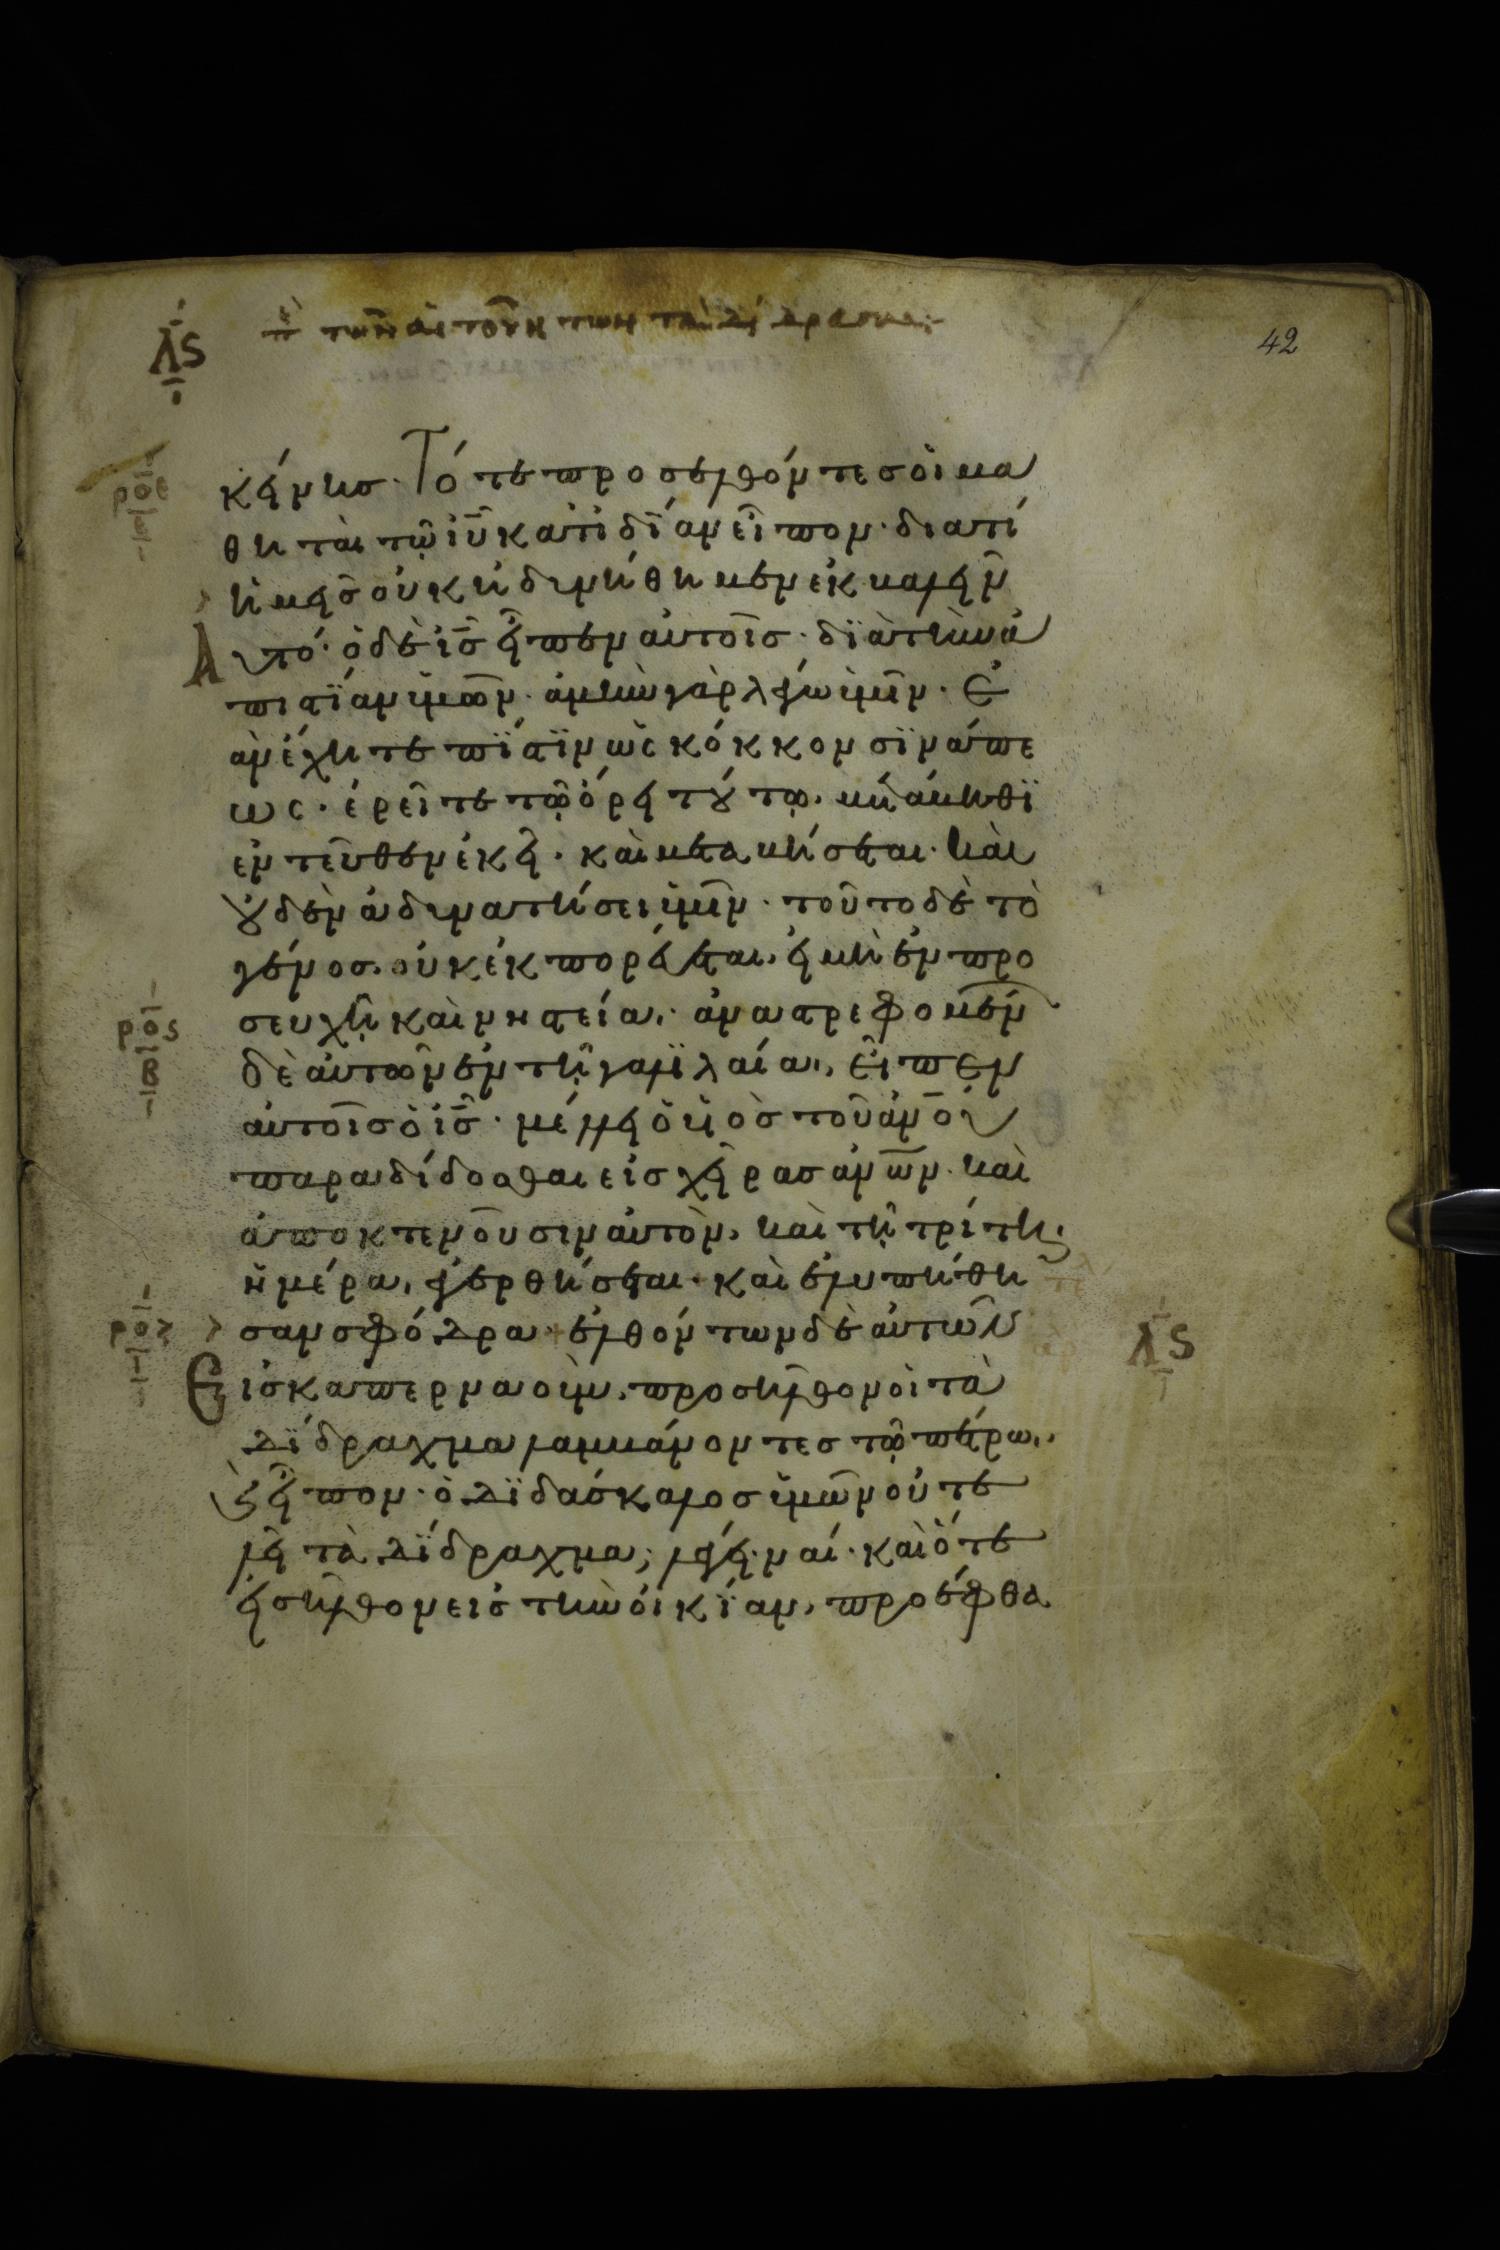 λς
πε τῶν αἰτούντων τὰ δίδραχμα:
42
κείνης. Τότε προσελθόντες οἱ μα
ροε
θηταὶ τῷ ιυ κατιδίαν εἶπον· διατί
ἡμεῖς οὐκ ἠδυνήθημεν ἐκβαλεῖν
αὐτό· ὁ δὲ ις εἶπεν αὐτοῖς· διὰ τὴν ἀ
πιστίαν ὑμῶν· ἀμὴν γὰρ λέγω ὑμῖν· ἐ
ὰν ἔχητε πίστιν ὡς κόκκον σινάπε
ως· ἐρεῖτε τῷ ὄρει τούτῳ· μετάβηθι
ἐντεῦθεν ἐκεῖ· καὶ μεταβήσεται· καὶ
οὐδὲν ἀδυνατήσει ὑμῖν· τοῦτο δὲ τὸ
γένος οὐκ ἐκπορεύεται, εἰ μὴ ἐν προ
ρος
β
σευχῇ καὶ νηστεία· ἀναστρεφομέν
δὲ αὐτῶν ἐν τῇ γαλιλαία, εἶπεν
αὐτοῖς ὁ ις· μέλλει ὁ υἱὸς τοῦ ανου
παραδίδοσθαι εἰς χεῖρας ανων· καὶ
ἀποκτενοῦσιν αὐτὸν, καὶ τῇ τρίτῃ
ἡμέρα, ἐγερθήσεται· καὶ ἐλυπήθη
τε
ροζ
σαν σφόδρα + ἐλθόντων δὲ αὐτῶν
αρ
λς
εἰς καπερναοὺμ, προσῆλθον οἱ τὰ
δίδραχμα λαμβάνοντες τῷ πέτρω,
καὶ εἶπον· ὁ διδάσκαλος ὑμῶν οὐ τε
λεῖ τὰ δίδραχμα; λέγει· ναί· καὶ ὅτε
εἰσῆλθον εἰς τὴν οἰκίαν, προέφθα